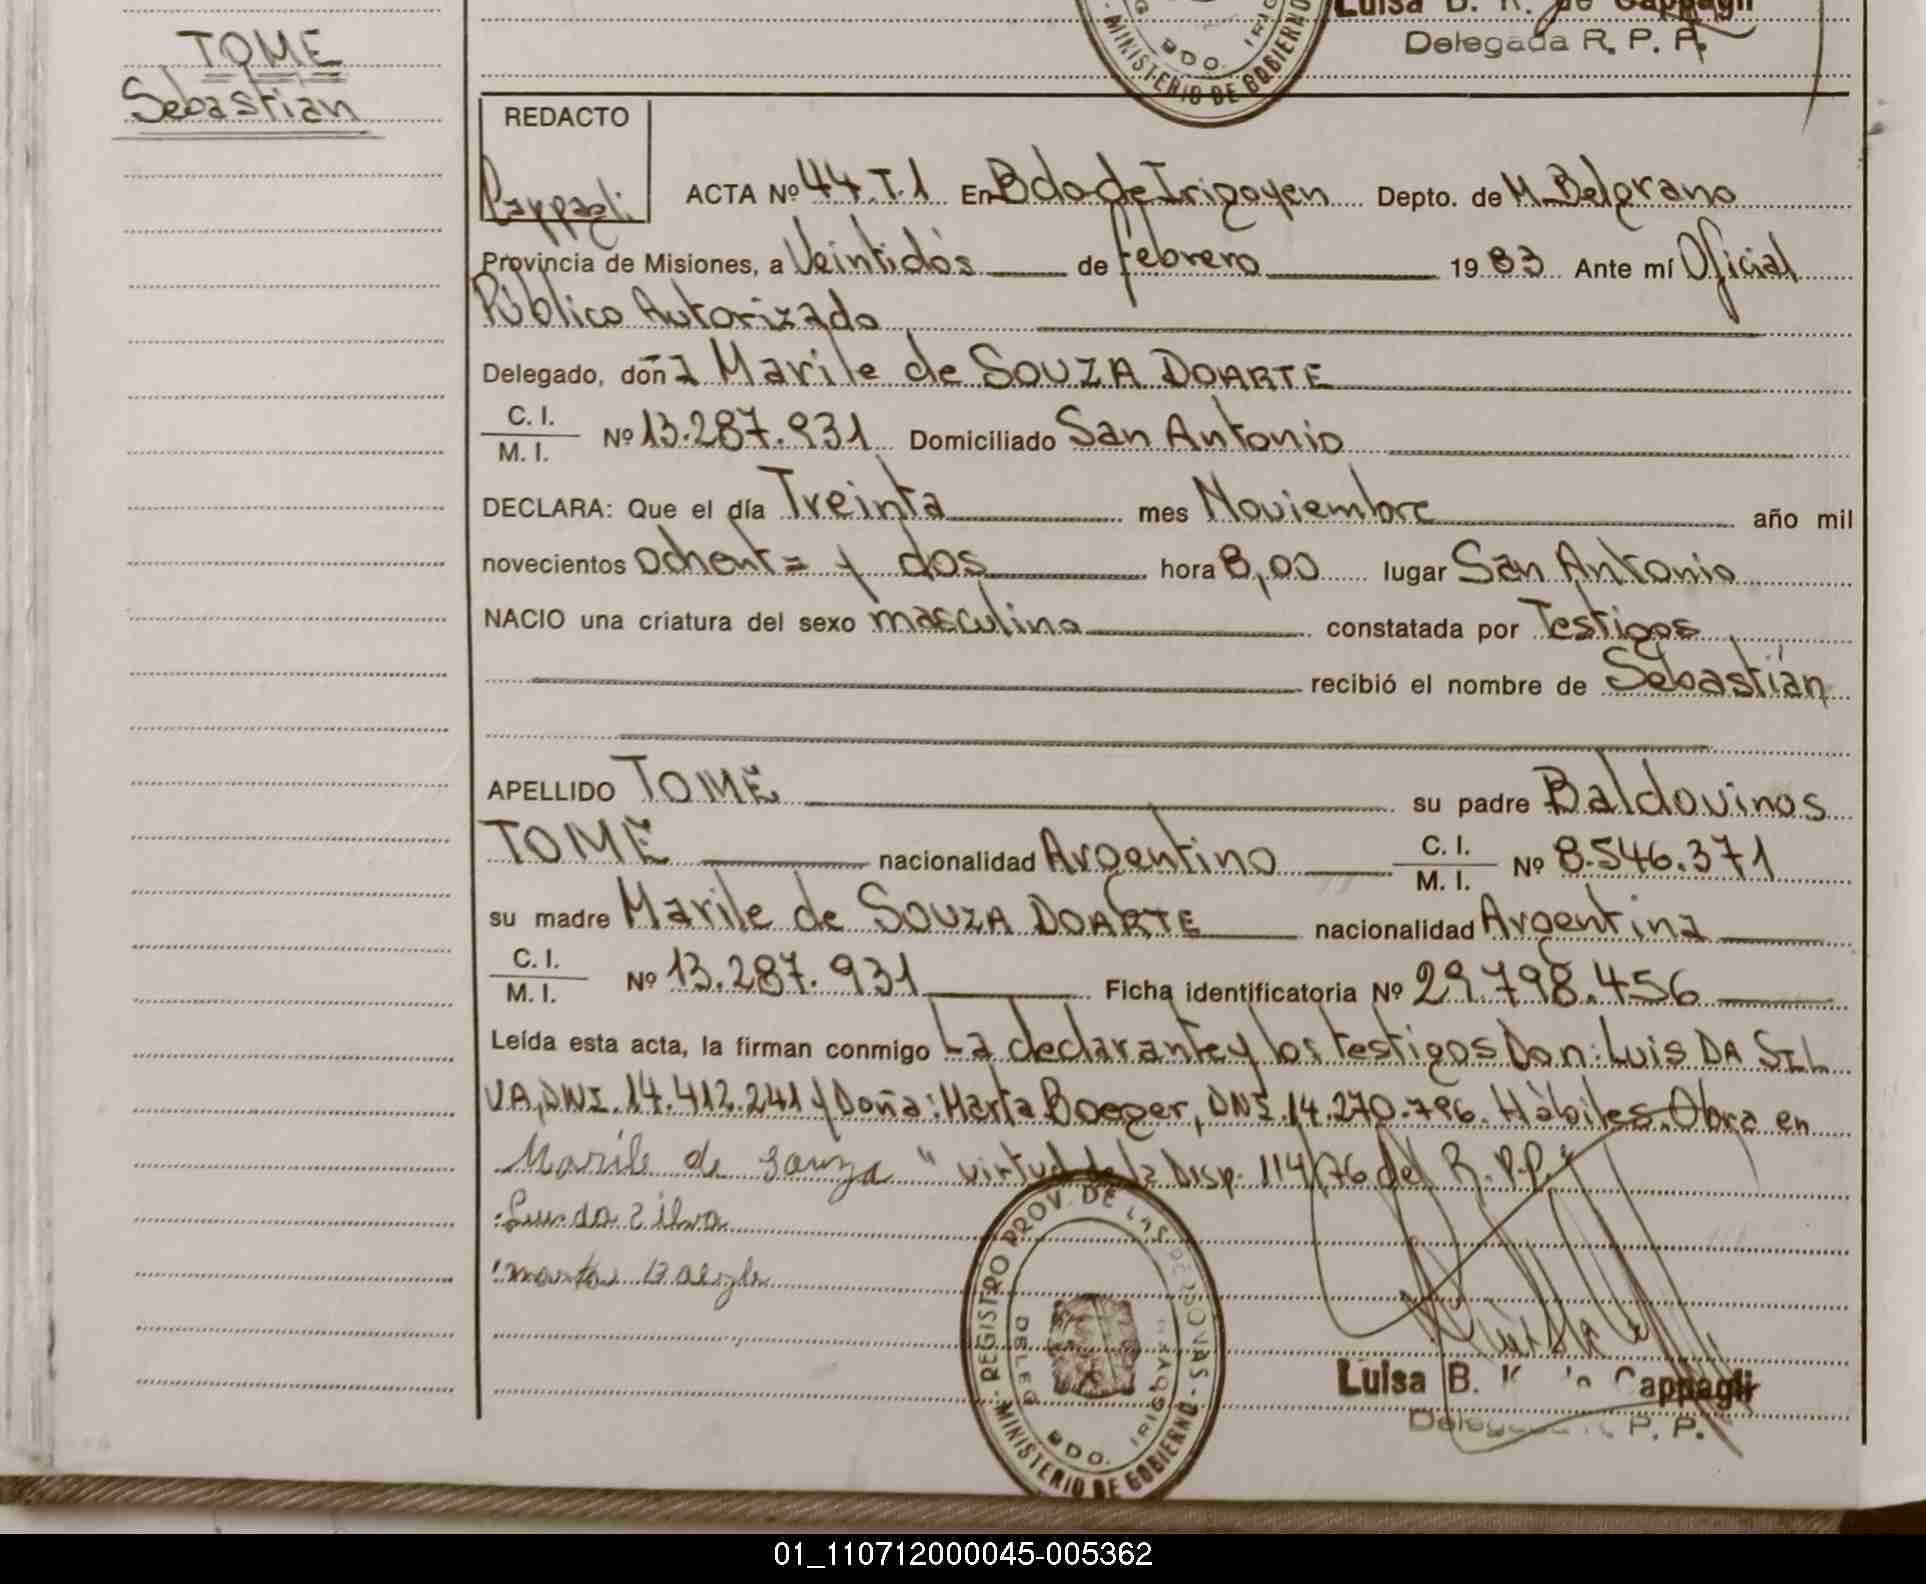 Luisa B. K. de Cappagli
Delegada R. P. P.
BDO. IRIG
MINISTERIO DE GOBIERNO
TOME
Sebastian
REDACTO
Cappagli
ACTA Nº 44.T.1 En Bdo de Irigoyen Depto. de M. Belgrano
Provincia de Misiones, a Veintidós de febrero 19 83 Ante mí Oficial
Público Autorizado
Delegado, doña Marile de SOUZA DOARTE
C. I. / M. I. Nº 13.287.931 Domiciliado San Antonio
DECLARA: Que el día Treinta mes Noviembre año mil
novecientos ochenta y dos hora 8,00 lugar San Antonio
NACIO una criatura del sexo masculino constatada por Testigos
recibió el nombre de Sebastián
APELLIDO TOME su padre Baldovinos
TOME nacionalidad Argentino C. I. / M. I. Nº 8.546.371
su madre Marile de SOUZA DOARTE nacionalidad Argentina
C. I. / M. I. Nº 13.287.931 Ficha identificatoria Nº 29.798.456
Leída esta acta, la firman conmigo La declarante y los testigos Don: Luis DA SIL
VA, DNI. 14.412.241 y Doña: Marta Boeger, DNI. 14.270.796. Hábiles. Obra en
Marile de Souza " virtud de la Disp. 114/76 del R.P.P."
Luis da Silva
marta
REGISTRO PROV. DE LAS PERSONAS
DELEG. BDO. IRIGOYEN
MINISTERIO DE GOBIERNO
Luisa B. K. de Cappagli
Delegada R. P. P.
01_110712000045-005362